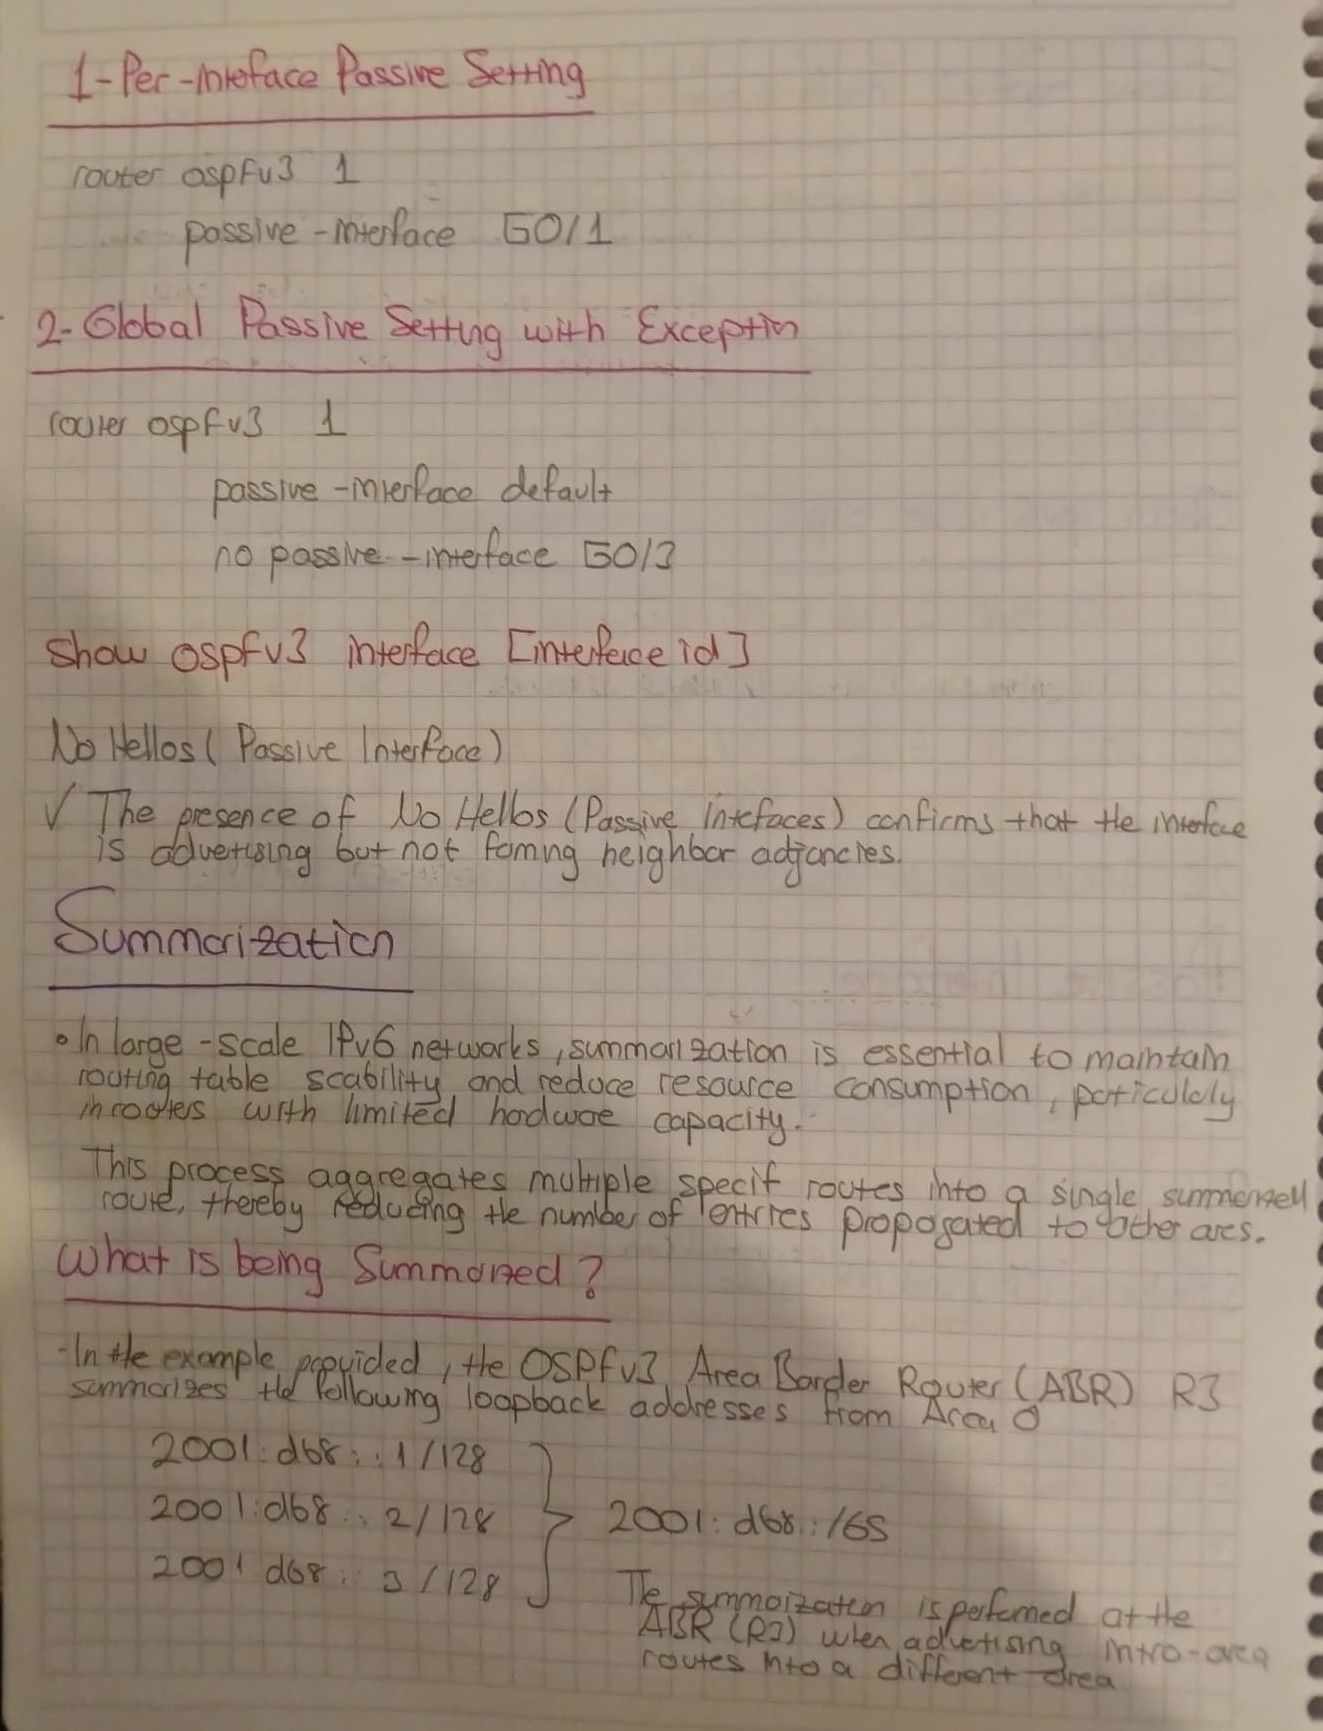 1-Per-inteface Passive Setting
router ospfv3 1
passive-interface G0/1
2-Global Passive Setting with Exception
router ospfv3 1
passive-interface default
no passive-interface G0/3
Show ospfv3 interface [interface id]
No Hellos (Passive Interface)
✓ The presence of No Hellos (Passive Intefaces) confirms that the interface
is advertising but not foming neighbor adjancies.
Summarization
• In large-scale IPv6 networks, summarization is essential to maintain
routing table scability and reduce resource consumption, particularly
in routers with limited hardware capacity.
This process aggregates multiple specif routes into a single summarized
route, thereby reducing the number of entries propogated to other ares.
What is being Summarized?
-In the example provided, the OSPFv3 Area Border Router (ABR) R3
summarizes the following loopback addresses from Area 0
2001:db8::1/128
2001:db8::2/128
2001:db8::3/128
2001:db8::/65
The summarization is performed at the
ABR (R3) when advertising intra-area
routes into a different area